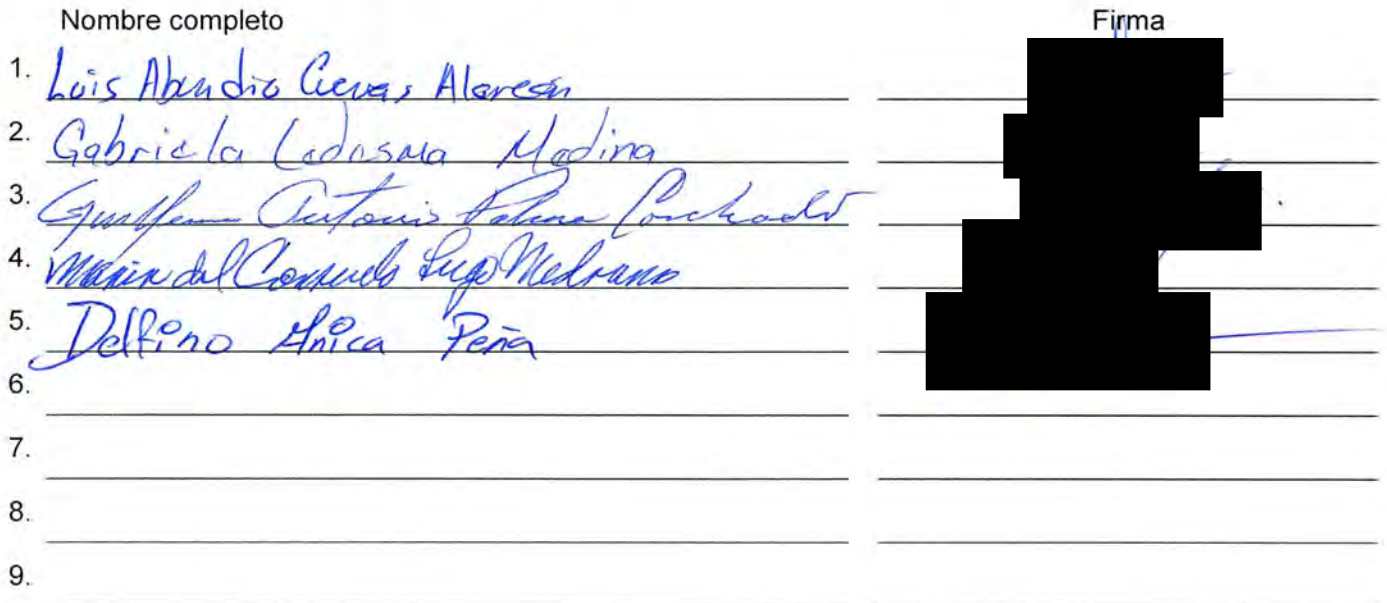 Nombre completo Firma
1. Luis Abundio Cuevas Alarcón
2. Gabriela Ledesma Medina
3. Antonio
4. María del Consuelo Lugo Medrano
5. Delfino Peña
6.
7.
8.
9.